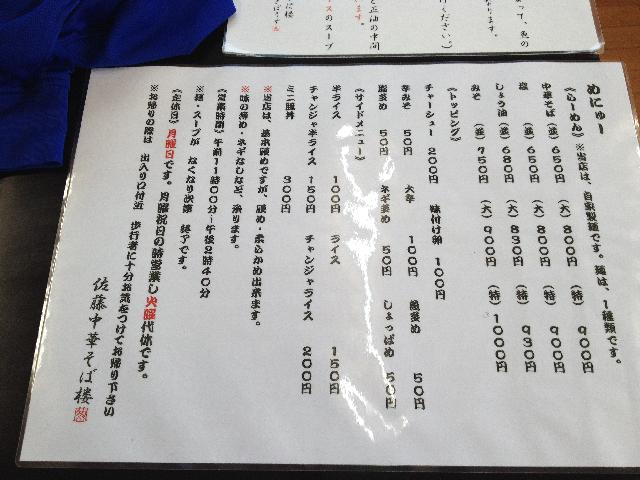 めにゅー
《らーめん》※当店は、自家製麺です。麺は、1種類です。
中華そば (並) 650円 (大) 800円 (特) 900円
塩 (並) 650円 (大) 800円 (特) 900円
しょう油 (並) 680円 (大) 830円 (特) 930円
みそ (並) 750円 (大) 900円 (特) 1000円
《トッピング》
チャーシュー 200円 味付け卵 100円
辛みそ 50円 大辛 100円 50円
50円 ネギ多め 50円 しょっぱめ 50円
《サイドメニュー》
半ライス 100円 ライス 150円
チャンジャ半ライス 150円 チャンジャライス 200円
ミニ豚丼 300円
※当店は、基本硬めですが、硬め・柔らかめ出来ます。
※味の薄め・ネギなしなど、承ります。
《営業時間》午前11時00分~午後2時40分
※麺・スープが なくなり次第 終了です。
《定休日》月曜日です。月曜祝日の時営業し火曜代休です。
※お帰りの際は 出入り口付近 歩行者に十分お気をつけてお帰り下さい
佐藤中華そば楼
って、魚の
なります。
行ください。)
と正油の中間
ます。
スのスープ